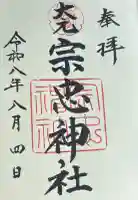 奉拝
大元
宗忠神社
令和八年八月四日